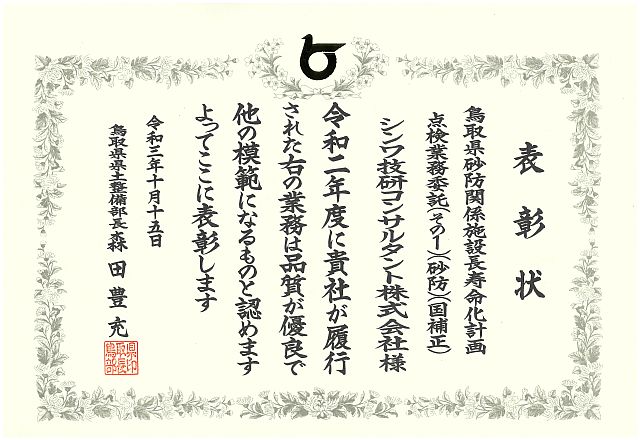 表彰状
鳥取県砂防関係施設長寿命化計画
点検業務委託(その1)(砂防)(国補正)
シンワ技研コンサルタント株式会社様
令和二年度に貴社が履行
された右の業務は品質が優良で
他の模範になるものと認めます
よってここに表彰します
令和三年十月十五日
鳥取県県土整備部長 森田豊充